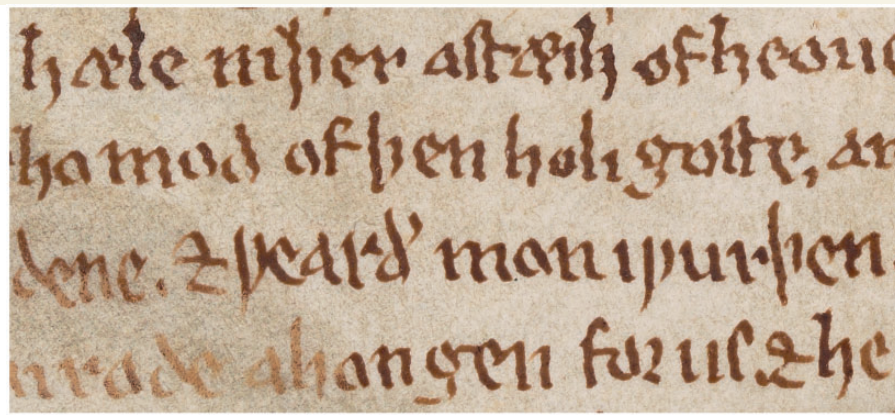 hæle niþer astæih of heoue
homod of þen holi goste, an
dene. ⁊ ƿearð mon iƿurþen.
n rode ahongen for us. ⁊ he